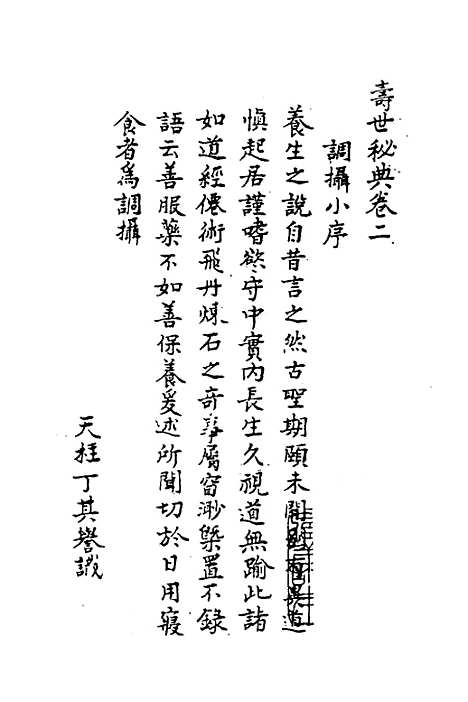 壽世秘典卷二
調攝小序
養生之說自昔言之然古聖期頤未聞別有異道
慎起居謹嗜慾守中實內長生久視道無踰此諸
如道經僊術飛丹煉石之奇事屬窅渺槩置不錄
語云善服藥不如善保養爰述所聞切於日用寢
食者爲調攝
天柱丁其譽識